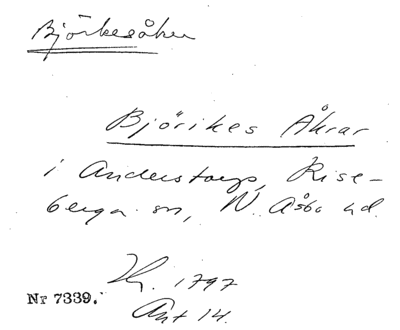 Björkesåker
Björikes Åkrar
i Anderstorps, Rise-
berga sn, N. Åsbo hd.
Hy. 1797
Akt 14.
Nr 7339.